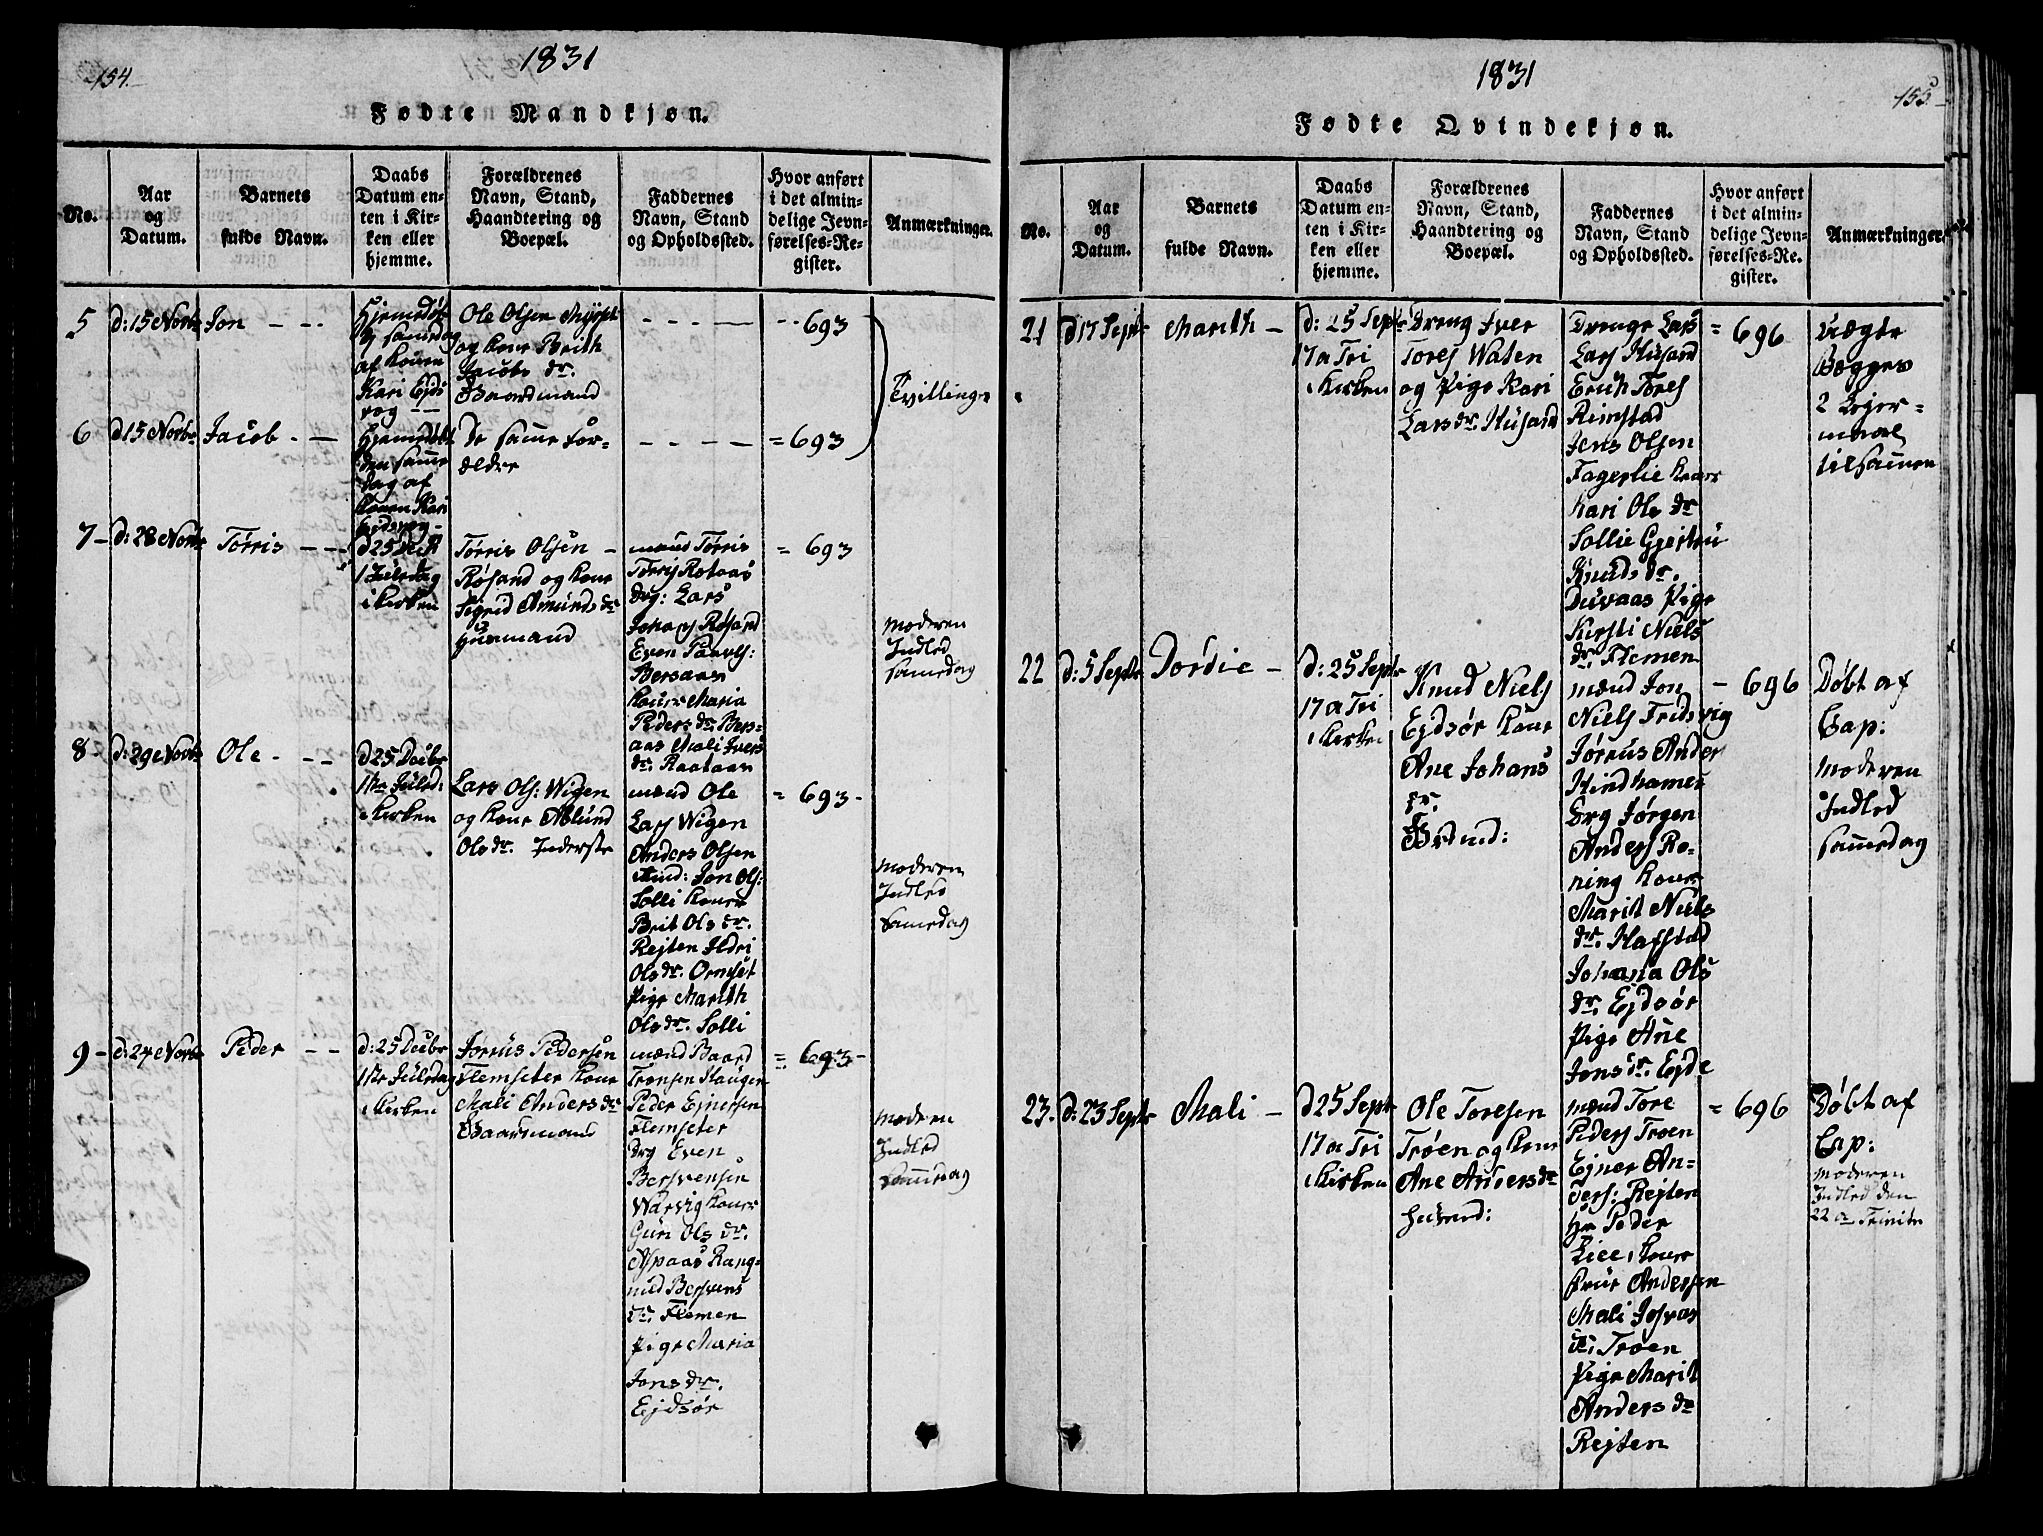 154.
1831
Fødte Mandkjøn.
No.
Aar
og
Datum.
Barnets
fulde Navn.
Daabs
Datum en-
ten i Kir-
ken eller
hjemme.
Forældrenes
Navn, Stand,
Haandtering og
Boepæl.
Faddernes
Navn, Stand
og Opholdssted.
Hvor anført
i det almin-
delige Jevn-
førelses-Re-
gister.
Anmærkninger.
5
d: 15 Novbr
Jon
Hjemedøb
af Konen
Kari Ejds
vog
Ole Olsen
og Kone Brith
Jacobs dr.
Baardmand
693
Tvillinge
6
d 15 Novbr
Jacob
Hjemdøbt
den samme
dag af
Konen Kari
De samme For-
ældre
= 693
7
d: 28 Novbr
Tørris
1 Juledag
i Kirken
Tørris Olsen
Røsand og Kone
Sigrid Amunds dr
Huusmand
mænd Tørris
Toresj Rotaas
drg: Lars
Johansj Røsand
Even Paavels:
Bersaas
Koner Maria
Peders dr. Bers-
aas Mali Ivers
dr. Raataas
= 693
moderen
Indled
samedag
8
d: 29 Novbr
Ole
d 25 Decbr
1ste Juled:
i Kirken
Lars Ols: Wigen
og Kone Ablund
Ols dr. Inderste
mænd Ole
Larsj Wigen
Anders Olsen
Jon Ols:
Solli Koner
Brit Ols dr.
Rejten Ildri
Ols dr. Ornset
Pige Marith
Ols dr. Solli
= 693
moderen
Indled
samedag
9
d: 24 Novbr
Peder
d: 25 Decbr
1ste Juledag
i Kirken
Jørrus Pedersen
Flemseter Kone
Mali Anders dr
Gaardmand
mænd Baard
Tronsen Haugen
Peder Ejnersen
Flemseter
drg Even
Bersvensen
Warvig Koner
Guri Ols dr.
Aspaas Rang-
nild Bersvens
dr. Flemen
Pige Maria
Jons dr.
Ejdsør
= 693
moderen
Indled
samedag
1831
155
Fødte Qvindekjøn.
No.
Aar
og
Datum.
Barnets
fulde Navn.
Daabs
Datum en-
ten i Kir-
ken eller
hjemme.
Forældrenes
Navn, Stand,
Haandtering og
Boepæl.
Faddernes
Navn, Stand
og Opholdssted.
Hvor anført
i det almin-
delige Jevn-
førelses-Re-
gister.
Anmærkninger.
21
d 17 Septr
Marith
d: 25 Septr
17 a Tri
i Kirken
Dreng Iver
Toresj Waten
og Pige Kari
Lars dr. Husand
Drenge Lars
Larsj Husand
Erich Toresj
Reinstad
Jens Olsen
Fagerlie Koner
Kari Ols dr
Sollie Gjertru
Knuds dr.
Duvaas Pige
Kirsti Niels
dr. Flemen
= 696
Uægte
Begges
2 Lejer=
maal
tilsamen
22
d: 5 Septr
Dordie
d: 25 Septr
17 a Tri
i Kirken
Knud Nielsj
Ejdsør Kone
Ane Johans
dr.
mænd Jon
Nielsj Fredsvig
Jørrus Ander
Hindhamer
Drg Jørgen
Andersj Rø-
ning Koner
Marit Niels
dr. Hafstad
Johana Ols
dr. Ejdsør
Pige Ane
Jons dr. Ejde
696
Døbt af
Cap:
moderen
Indled
samedag
23.
d: 23 Septr
Mali
d 25 Septr
17 a Tri
i Kirken
Ole Toresen
Trøen og Kone
Ane Anders dr
mænd Tore
Pedersj Trøen
Ejner An-
ders: Rejten
Hr Peder
Lice: Koner
Frue Andersen
Mali Josvas
dr. Trøen
Pige Marit
Anders dr
Rejten
= 696
Døbt af
Cap:
moderen
Indled den
22 a Trinite